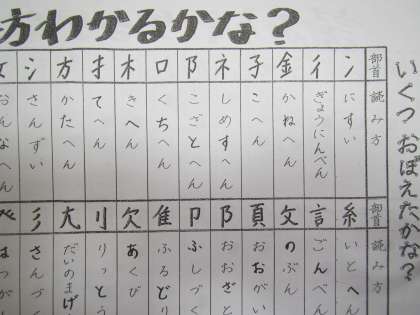 方わかるかな？
いくつおぼえたかな？
部首 読み方
冫 にすい
彳 ぎょうにんべん
金 かねへん
子 こへん
ネ しめすへん
阝 こざとへん
口 くちへん
木 きへん
扌 てへん
方 かたへん
シ さんずい
女 おんなへん
部首 読み方
糸 いとへん
言 ごんべん
文 のぶん
頁 おおがい
阝 おおざと
卩 ふしづく
隹 ふるとり
欠 あくび
刂 りっとう
尢 だいのまげ
彡 さんづく
癶 はつがし